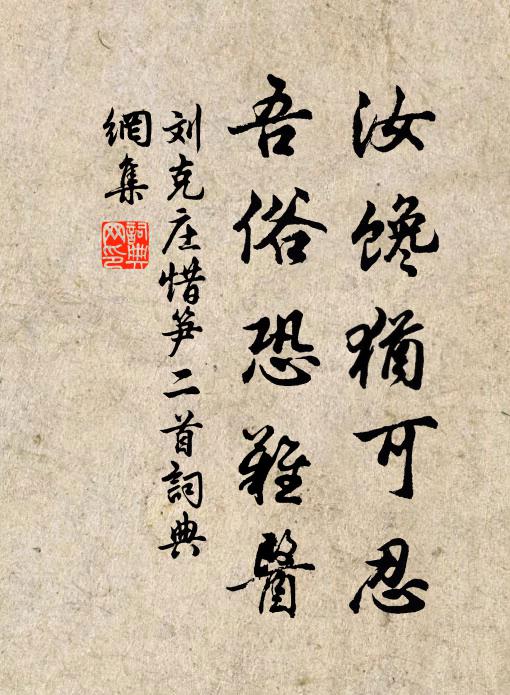 汝馋犹可忍
吾俗恐難醫
刘克庄惜笋二首詞典
網集
詞典网印